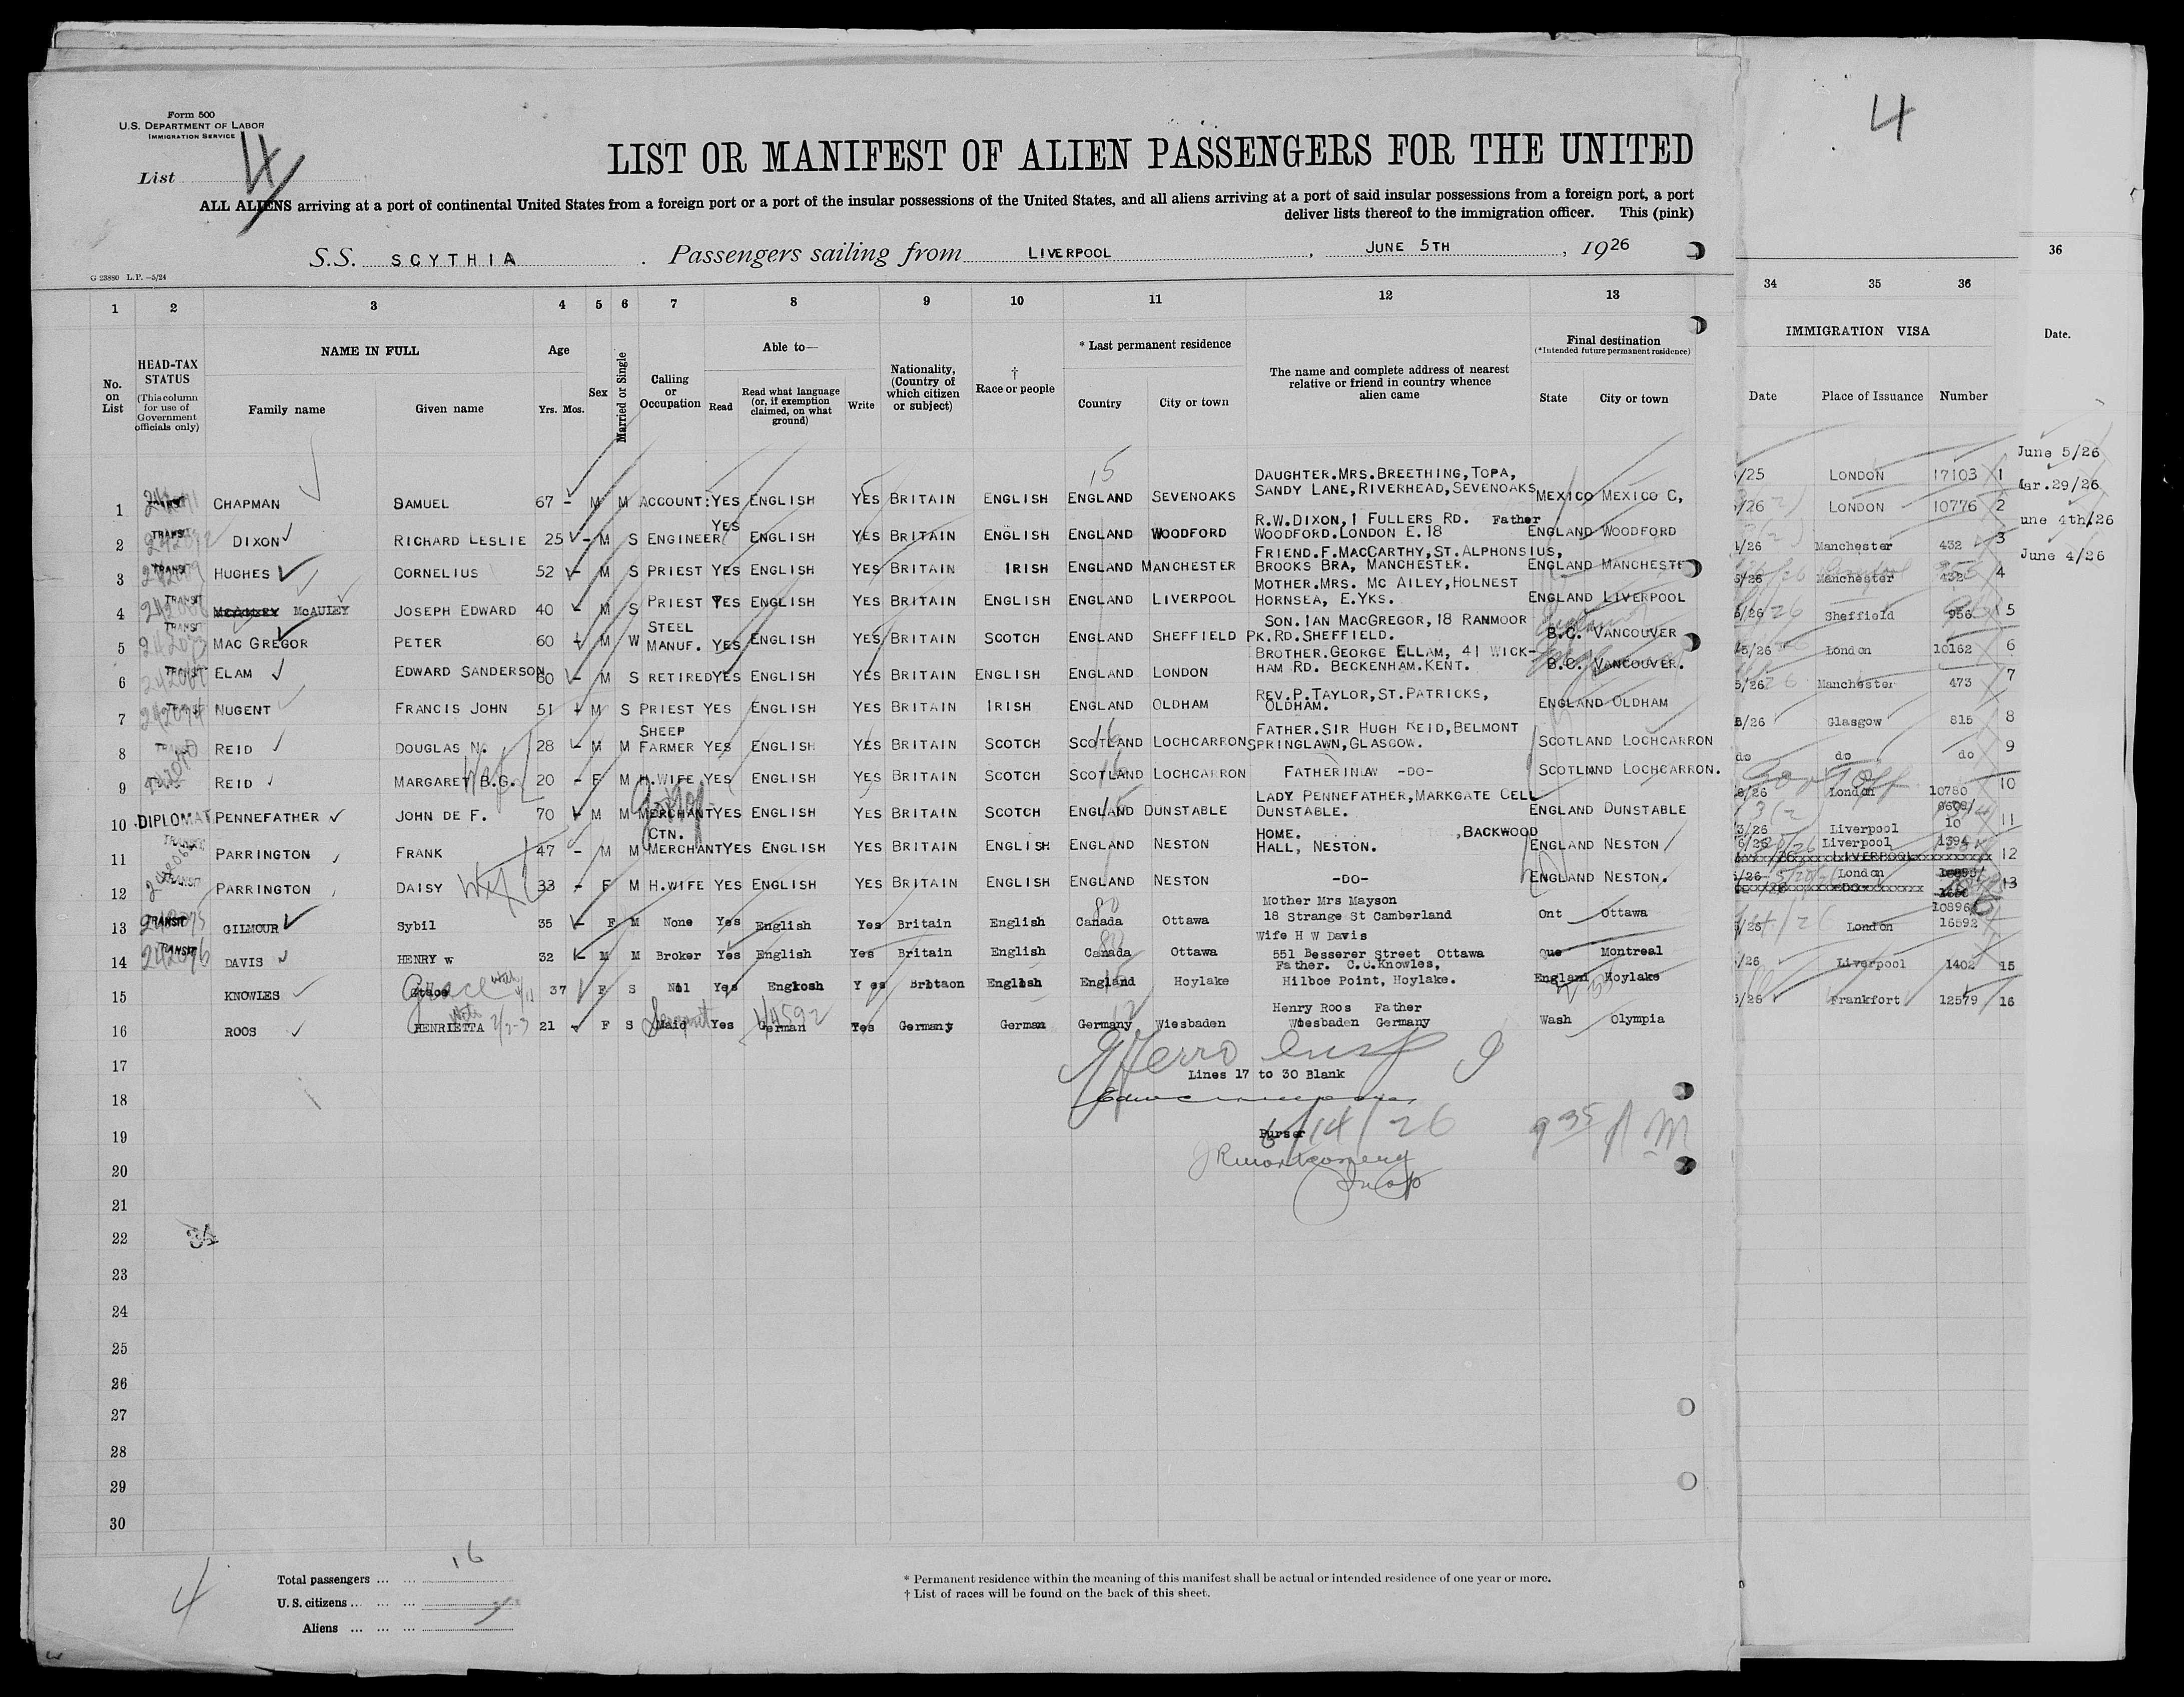 4
Form 500
U.S. DEPARTMENT OF LABOR
IMMIGRATION SERVICE
List 4
LIST OR MANIFEST OF ALIEN PASSENGERS FOR THE UNITED
ALL ALIENS arriving at a port of continental United States from a foreign port or a port of the insular possessions of the United States, and all aliens arriving at a port of said insular possessions from a foreign port, a port
deliver lists thereof to the immigration officer. This (pink)
S.S. SCYTHIA . Passengers sailing from LIVERPOOL , JUNE 5TH , 1926
G 23880 L.P.—5/24
36
1 2 3 4 5 6 7 8 9 10 11 12 13 34 35 36
No. on List
HEAD-TAX STATUS (This column for use of Government officials only)
NAME IN FULL
Family name Given name
Age
Yrs. Mos.
Sex
Married or Single
Calling or Occupation
Able to—
Read
Read what language (or, if exemption claimed, on what ground)
Write
Nationality, (Country of which citizen or subject)
† Race or people
* Last permanent residence
Country City or town
The name and complete address of nearest relative or friend in country whence alien came
Final destination
(*Intended future permanent residence)
State City or town
IMMIGRATION VISA
Date Place of Issuance Number
Date.
15
DAUGHTER.MRS.BREETHING,TOPA,
1 CHAPMAN SAMUEL 67 - M M ACCOUNT: YES ENGLISH YES BRITAIN ENGLISH ENGLAND SEVENOAKS SANDY LANE,RIVERHEAD,SEVENOAKS MEXICO MEXICO C,
R.W.DIXON,1 FULLERS RD. Father
2 TRANSIT DIXON RICHARD LESLIE 25 - M S ENGINEER YES ENGLISH YES BRITAIN ENGLISH ENGLAND WOODFORD WOODFORD.LONDON E.18 ENGLAND WOODFORD
FRIEND.F.MACCARTHY,ST.ALPHONSIUS,
3 TRANSIT HUGHES CORNELIUS 52 - M S PRIEST YES ENGLISH YES BRITAIN IRISH ENGLAND MANCHESTER BROOKS BRA, MANCHESTER. ENGLAND MANCHESTE
MOTHER.MRS. MC AILEY,HOLNEST
4 TRANSIT MCAULEY JOSEPH EDWARD 40 - M S PRIEST YES ENGLISH YES BRITAIN ENGLISH ENGLAND LIVERPOOL HORNSEA, E.YKS. ENGLAND LIVERPOOL
SON.IAN MACGREGOR,18 RANMOOR
5 TRANSIT MAC GREGOR PETER 60 M W STEEL MANUF. YES ENGLISH YES BRITAIN SCOTCH ENGLAND SHEFFIELD PK.RD.SHEFFIELD. B.C. VANCOUVER
BROTHER.GEORGE ELLAM, 41 WICK-
6 TRANSIT ELAM EDWARD SANDERSON 60 - M S RETIRED YES ENGLISH YES BRITAIN ENGLISH ENGLAND LONDON HAM RD. BECKENHAM.KENT. B.C. VANCOUVER.
REV.P.TAYLOR,ST.PATRICKS,
7 NUGENT FRANCIS JOHN 51 M S PRIEST YES ENGLISH YES BRITAIN IRISH ENGLAND OLDHAM OLDHAM. ENGLAND OLDHAM
FATHER.SIR HUGH REID,BELMONT
8 REID DOUGLAS N. 28 - M M SHEEP FARMER YES ENGLISH YES BRITAIN SCOTCH SCOTLAND LOCHCARRON SPRINGLAWN,GLASGOW. SCOTLAND LOCHCARRON
9 REID MARGARET B.G. 20 - F M H.WIFE YES ENGLISH YES BRITAIN SCOTCH SCOTLAND LOCHCARRON FATHERINLAW -DO- SCOTLAND LOCHCARRON.
LADY PENNEFATHER,MARKGATE CELL
10 DIPLOMAT PENNEFATHER JOHN DE F. 70 M M MERCHANT YES ENGLISH YES BRITAIN SCOTCH ENGLAND DUNSTABLE DUNSTABLE. ENGLAND DUNSTABLE
HOME. ,BACKWOOD
11 TRANSIT PARRINGTON FRANK 47 - M M CTN. MERCHANT YES ENGLISH YES BRITAIN ENGLISH ENGLAND NESTON HALL, NESTON. ENGLAND NESTON
12 TRANSIT PARRINGTON DAISY 33 - F M H.WIFE YES ENGLISH YES BRITAIN ENGLISH ENGLAND NESTON -DO- ENGLAND NESTON.
Mother Mrs Mayson
13 TRANSIT GILMOUR Sybil 35 - F M None Yes English Yes Britain English Canada Ottawa 18 Strange St Camberland Ont Ottawa
Wife H W Davis
14 TRANSIT DAVIS HENRY W 32 - M M Broker Yes English Yes Britain English Canada Ottawa 551 Besserer Street Ottawa Que Montreal
Father. C.O.Knowles,
15 KNOWLES Grace 37 F S Nil Yes Engkosh Y es Britaon English England Hoylake Hilboe Point, Hoylake. England Hoylake
Henry Roos Father
16 ROOS HENRIETTA 21 F S Maid Servant Yes German Yes Germany German Germany Wiesbaden Wiesbaden Germany Wash Olympia
17
Lines 17 to 30 Blank
18
19 Purser 6/14/26 9 35 A M
20 R Montgomery
21
22 34
23
24
25
26
27
28
29
30
/25 LONDON 17103 1 June 5/26
/26 LONDON 10776 2 ar.29/26
/26 Manchester 432 3 une 4th/26
5/26 Manchester 432 4 June 4/26
/26 Sheffield 956 5
5/26 London 10162 6
5/26 Manchester 473 7
/26 Glasgow 815 8
do do do 9
/26 London 10780 10
3/26 Liverpool 10 11
6/26 Liverpool 1394
LIVERPOOL 12
/26 London 13
108960
/26 London 16592
/26 Liverpool 1402 15
5/26 Frankfort 12579 16
4
Total passengers ... ... 16
U. S. citizens ... ... ...
Aliens ... ... ...
* Permanent residence within the meaning of this manifest shall be actual or intended residence of one year or more.
† List of races will be found on the back of this sheet.